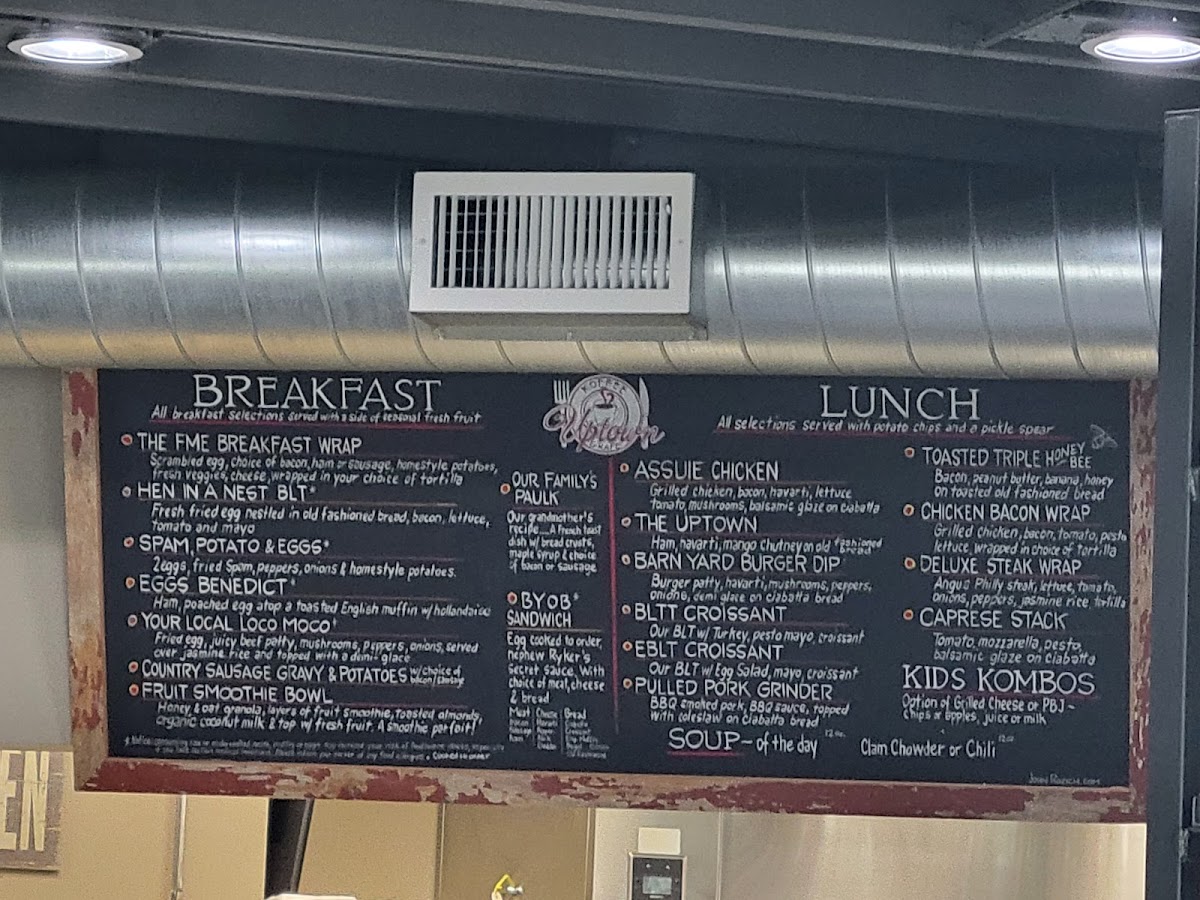 BREAKFAST
All breakfast selections served with a side of seasonal fresh fruit
THE FME BREAKFAST WRAP
Scrambled egg, choice of bacon, ham or sausage, homestyle potatoes,
fresh veggies, cheese, wrapped in your choice of tortilla
HEN IN A NEST BLT*
Fresh fried egg nestled in old fashioned bread, bacon, lettuce,
tomato and mayo
SPAM, POTATO & EGGS*
2eggs, fried Spam, peppers, onions & homestyle potatoes.
EGGS BENEDICT*
Ham, poached egg atop a toasted English muffin w/ hollandaise
YOUR LOCAL LOCO MOCO*
Fried egg, juicy beef patty, mushrooms, peppers, onions, served
over jasmine rice and topped with a demi-glace
COUNTRY SAUSAGE GRAVY & POTATOES w/choice of
bacon/sausage
FRUIT SMOOTHIE BOWL
Honey & oat granola, layers of fruit smoothie, toasted almonds,
organic coconut milk & top w/ fresh fruit. A smoothie parfait!
OUR FAMILY'S
PAULK
Our grandmother's
recipe...A French toast
dish w/ bread crusts,
maple syrup & choice
of bacon or sausage
BYOB*
SANDWICH
Egg cooked to order,
nephew Ryker's
Secret sauce, With
choice of meat, cheese
& bread
Meat Cheese Bread
KOFFEE
Uptown
LUNCH
All selections served with potato chips and a pickle spear
ASSUIE CHICKEN
Grilled chicken, bacon, havarti, lettuce
tomato, mushrooms, balsamic glaze on ciabatta
THE UPTOWN
Ham, havarti, mango chutney on old fashioned
bread
BARN YARD BURGER DIP
Burger patty, havarti, mushrooms, peppers,
onions, demi glace on ciabatta bread
BLTT CROISSANT
Our BLT w/ Turkey, pesto mayo, croissant
EBLT CROISSANT
Our BLT w/ Egg Salad, mayo, croissant
PULLED PORK GRINDER
BBQ smoked pork, BBQ sauce, topped
with coleslaw on ciabatta bread
TOASTED TRIPLE HONEY
BEE
Bacon, peanut butter, banana, honey
on toasted old fashioned bread
CHICKEN BACON WRAP
Grilled chicken, bacon, tomato, pesto
lettuce, wrapped in choice of tortilla
DELUXE STEAK WRAP
Angus Philly steak, lettuce, tomato,
onions, peppers, jasmine rice, tortilla
CAPRESE STACK
Tomato, mozzarella, pesto,
balsamic glaze on ciabatta
KIDS KOMBOS
Option of Grilled Cheese or PBJ -
chips or apples, juice or milk
SOUP - of the day 12 oz.
Clam Chowder or Chili 12 oz
EN